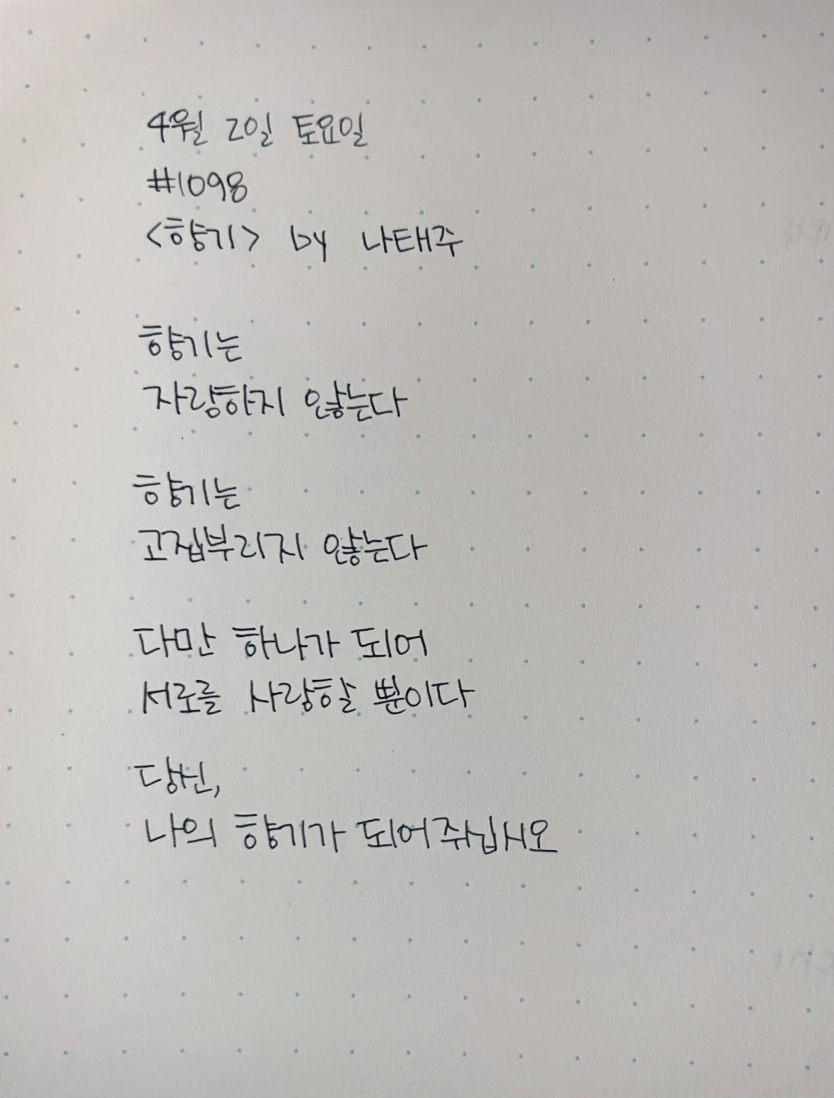 4월 2일 토요일
#1098
<향기> by 나태주
향기는
자랑하지 않는다
향기는
고집부리지 않는다
다만 하나가 되어
서로를 사랑할 뿐이다
당신,
나의 향기가 되어주십시오